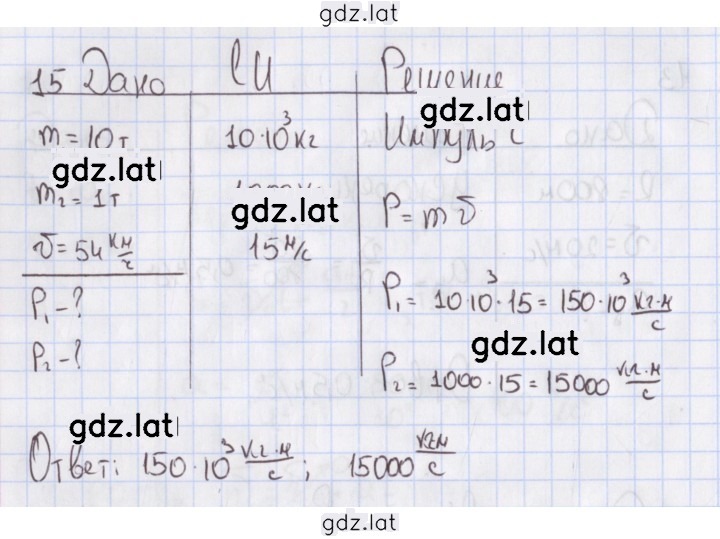 gdz.lat
15 Дано СИ Решение
m = 10 т 10·10³ кг Импульс
gdz.lat
gdz.lat
m₂ = 1 т gdz.lat P = mυ
υ = 54 км/ч 15 м/с
P₁ - ? P₁ = 10·10³·15 = 150·10³ кг·м/с
gdz.lat
P₂ - ? P₂ = 1000·15 = 15000 кг·м/с
gdz.lat
Ответ: 150·10³ кг·м/с; 15000 кгм/с
gdz.lat